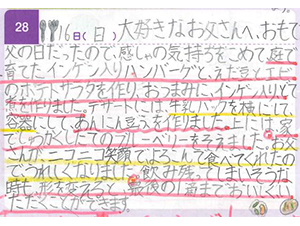 28 16日(日)大好きなお父さんへ、おもて
父の日だったので、感しゃの気持ちをこめて庭で
育てたインゲン入りハンバーグと、えだ豆とエビ
のポテトサラダを作り、おつまみに、インゲン入りとて
煮を作りました。デザートには牛乳パックを横にして
容器にして、あんにん豆ふを作りました。上には、家
でしゅうかくしたてのブルーベリーをそえました。お父
さんが、ニコニコ笑顔でほろこんで食べてくれたの
でうれしくなりました。飲み残ってしまいそうな
時も、形をなえると、最後の1滴までおいしくい
ただくことができます。